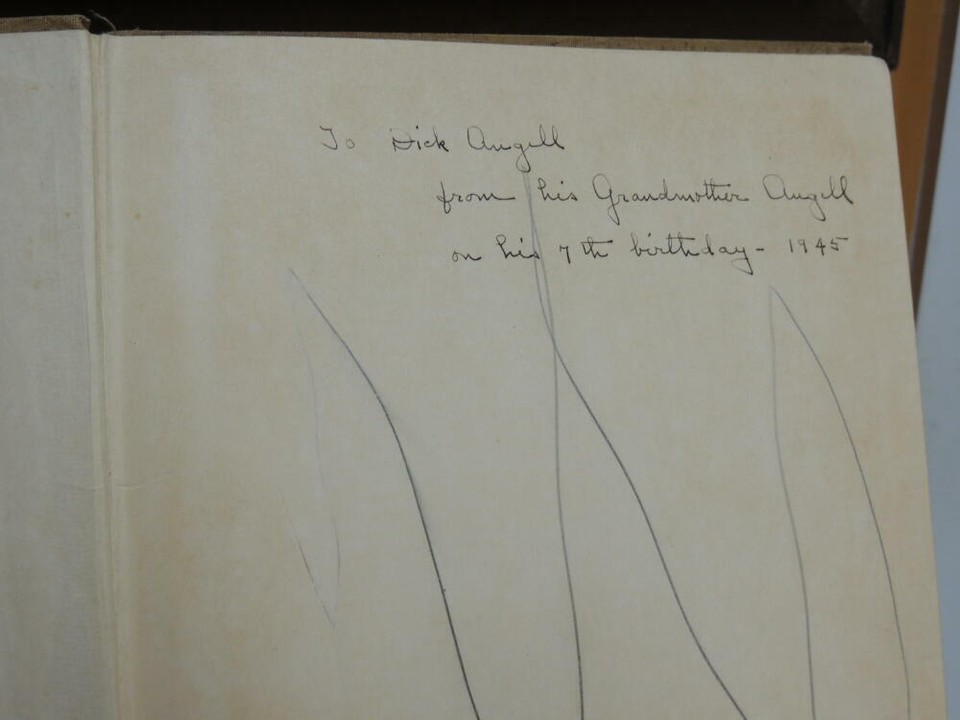 To Dick Angell
from his Grandmother Angell
on his 7th birthday - 1945